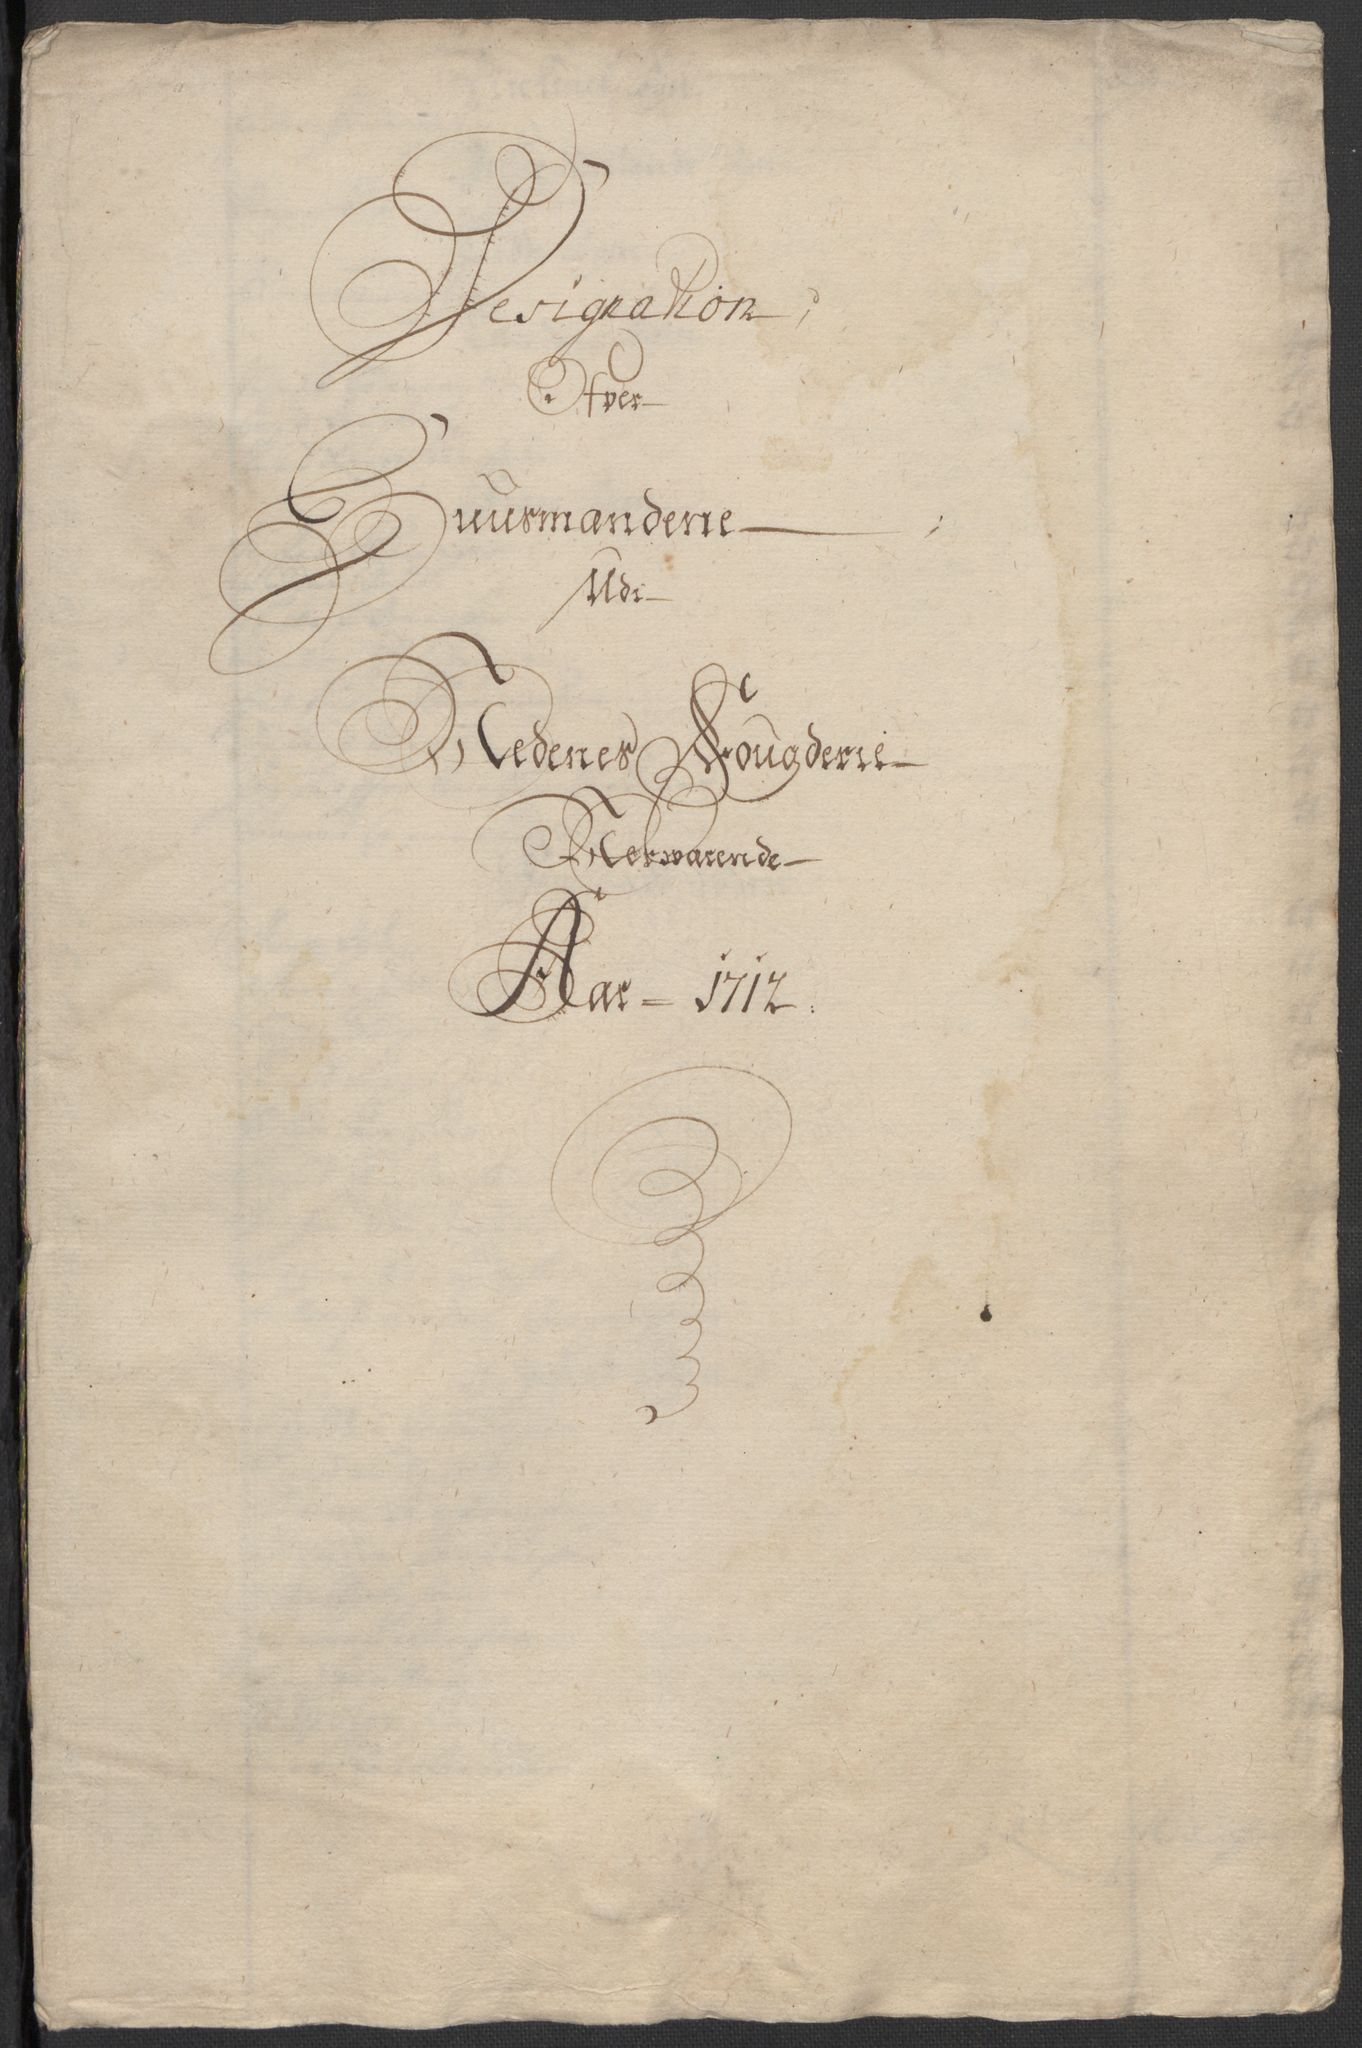 Designation,
Ofver
Huusmandene
Udi
Nedenes Fougderie
Nerwærende
Aar 1712.